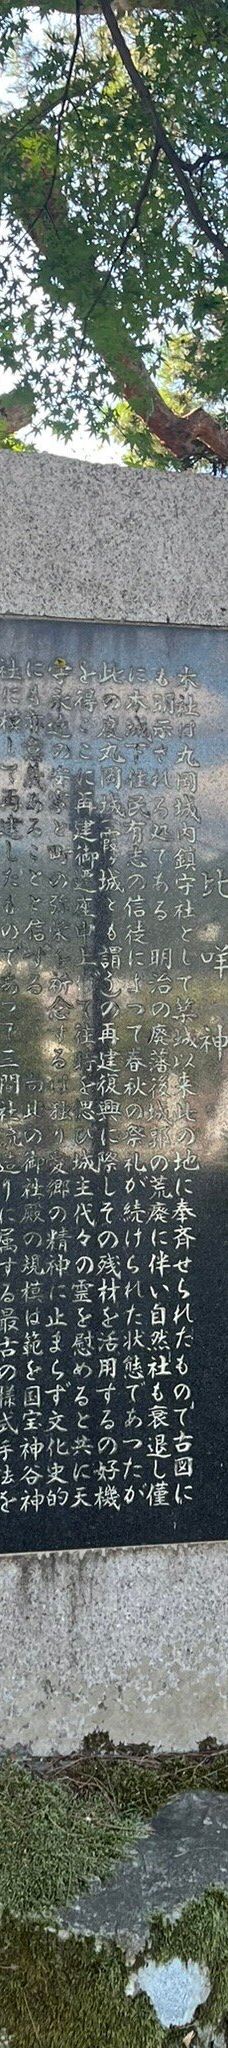 比咩神
本社は丸岡城内鎮守社として築城以来此の地に奉斉せられたもので古図に
も明示される処である 明治の廃藩後城郭の荒廃に伴い自然社も衰退し僅
に本城下住民有志の信徒によつて春秋の祭礼が続けられた状態であつたが
此の度丸岡城(霞ヶ城とも謂う)の再建復興に際しその残材を活用するの好機
を得ここに再建御遷座申上げて往時を思び城主代々の霊を慰めると共に天
永遠の安泰と町の弥栄を祈念するは独り愛郷の精神に止まらず文化史的
にも亦意義あることと信ずる 尚此の御社殿の規模は範を国宝神谷神
社に模して再建したものであつて三間社流造りに属する最古の様式手法を